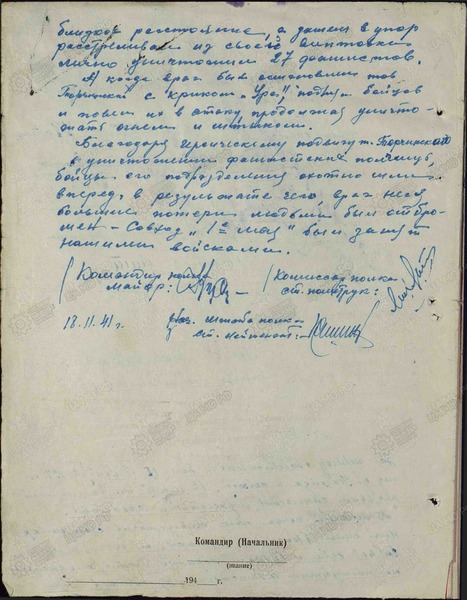 близкое расстояние, а затем в упор
расстреливал из своей винтовки
лично уничтожил 27 фашистов.
А когда враг был остановлен тов.
с криком „Ура“, поднял бойцов
и повел их в атаку продолжая уничто-
жать огнем и штыком.
Благодаря героическому подвигу т.
в уничтожении фашистских полчищ,
бойцы его подразделения охотно шли
вперед, в результате чего, враг неся
большие потери людьми был отбро-
шен – Совхоз „1е мая“ был занят
нашими войсками.
Командир полка
майор:
Комиссар полка
ст. политрук:
18.11.41 г.
штаба полка –
ст. лейтенант:
Командир (Начальник)
(звание)
194 г.